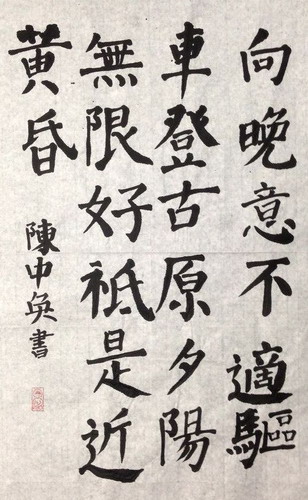 向晚意不適驅
車登古原夕陽
無限好祗是近
黃昏
陳中奐書